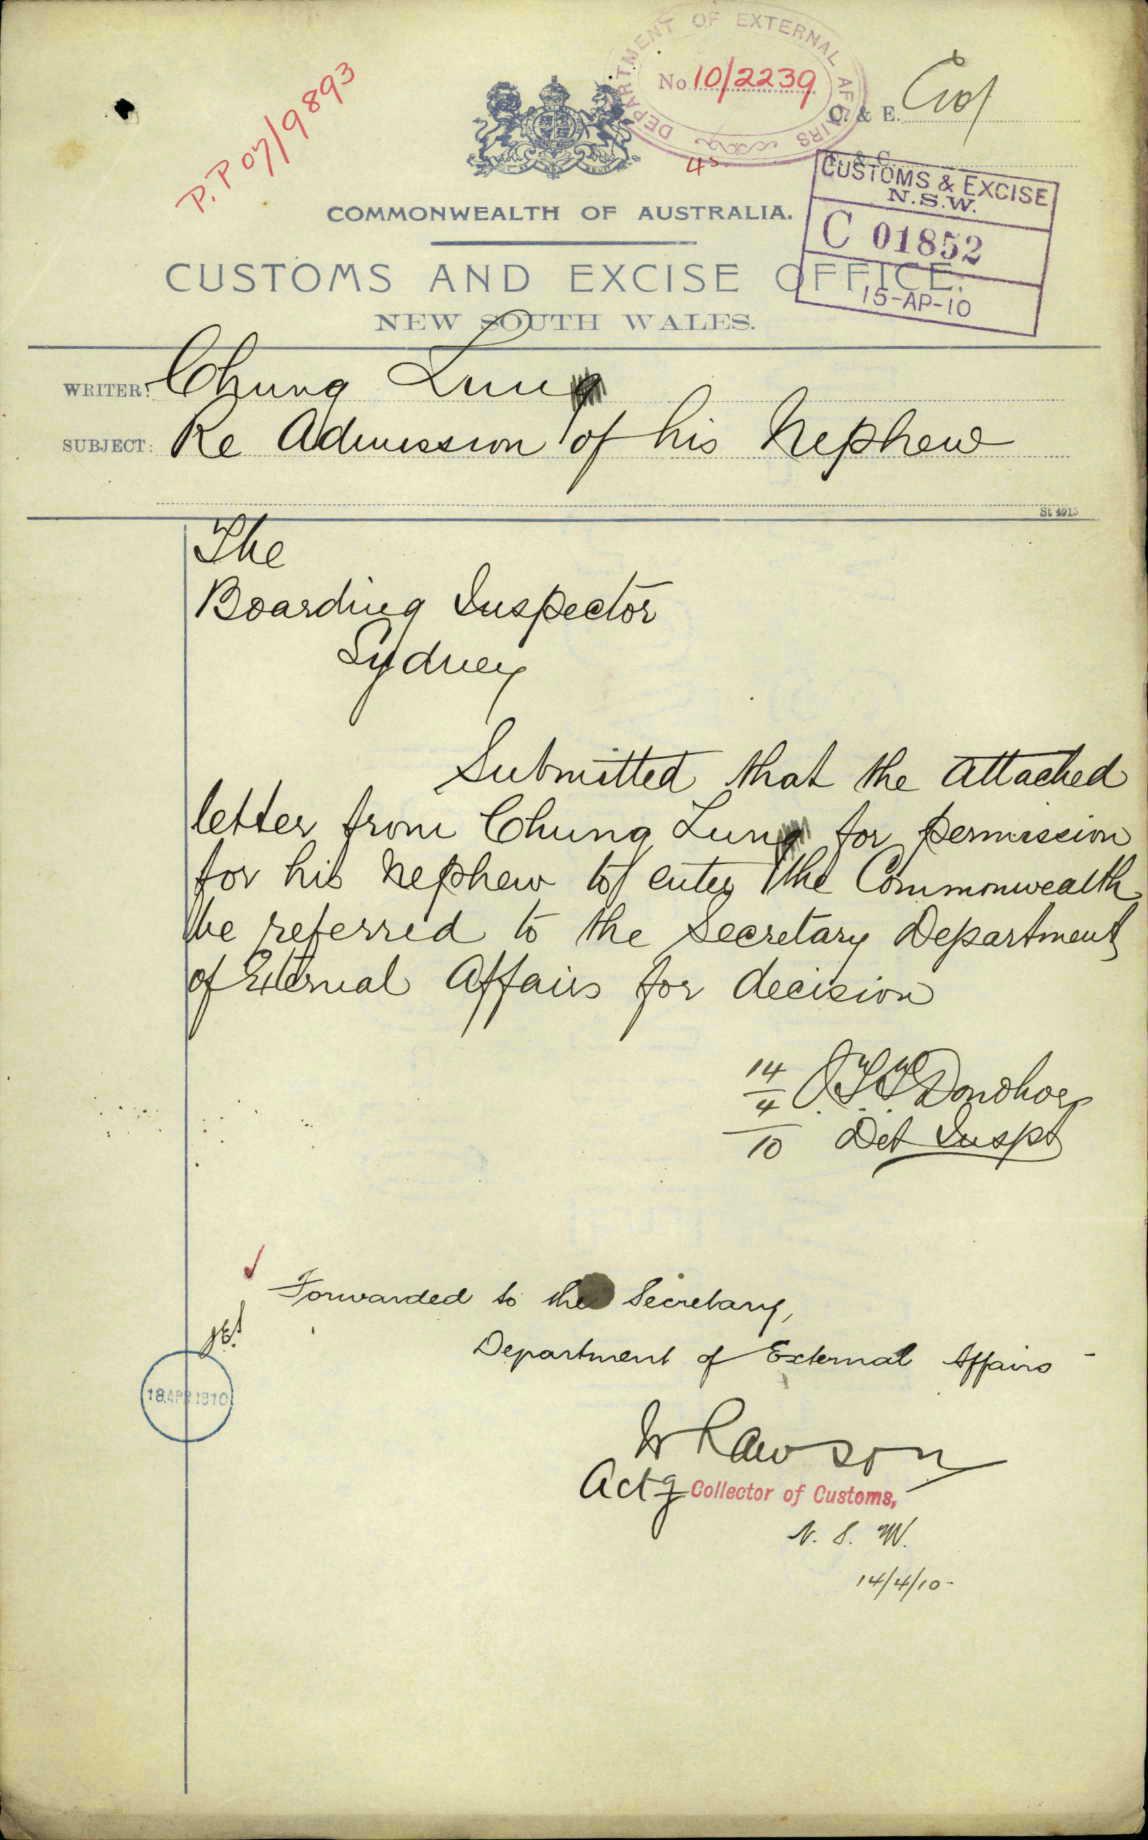 P.P 07/9893
DEPARTMENT OF EXTERNAL AFFAIRS
No 10/2239
C. & E.
4s.
CUSTOMS & EXCISE
N.S.W.
C 01852
15-AP-10
COMMONWEALTH OF AUSTRALIA.
CUSTOMS AND EXCISE OFFICE.
NEW SOUTH WALES.
WRITER: Chung Lung
SUBJECT: Re Admission of his Nephew
St 4913
The
Boarding Inspector
Sydney
Submitted that the attached
letter from Chung Lung for permission
for his Nephew to enter the Commonwealth
be referred to the Secretary Department
of External Affairs for decision
14/4/10 Donohoe
Det Inspt
Forwarded to the Secretary,
Department of External Affairs -
18 APR 1910
W Rawson
Actg Collector of Customs,
N. S. W.
14/4/10-